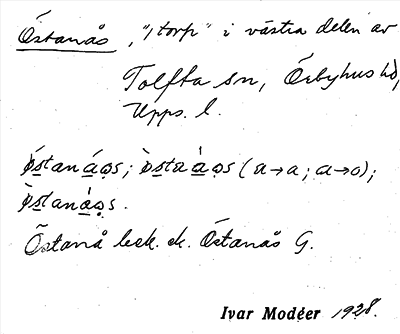 Östanås, "1 torp" i västra delen av
Tolfta sn, Örbyhus hd,
Upps. l.
östanå̀o̧s; ö̀staá̀o̧s (a→a; a→o);
ö̀stanáo̧s.
Östanå bek. ek. Östanås G.
Ivar Modéer 1928.